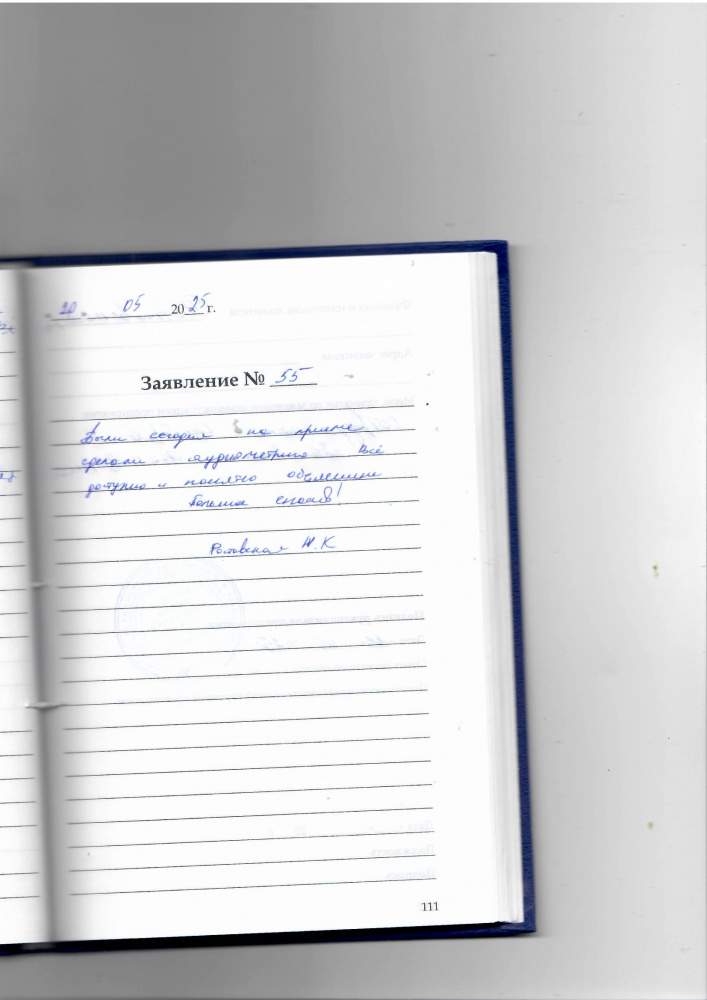 20 05 2025 г.
Заявление № 55
Были сегодня на приеме
сделали аудиометрию Всё
доступно и понятно объяснили
Большое спасибо!
Ж.К
111